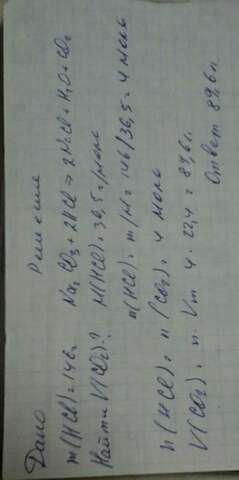 Дано Решение
m(HCl)=146г. Na₂CO₃+2HCl→2NaCl+H₂O+CO₂
Найти V(CO₂)? M(HCl)=36,5г/моль
n(HCl)=m/M=146/36,5=4 моль
n(HCl)=n(CO₂)=4 моль
V(CO₂)=n·Vm=4·22,4=89,6л.
Ответ 89,6л.